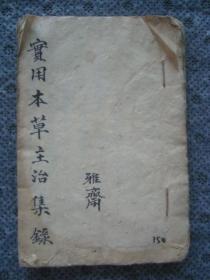 實用本草主治集錄
雅齋
150